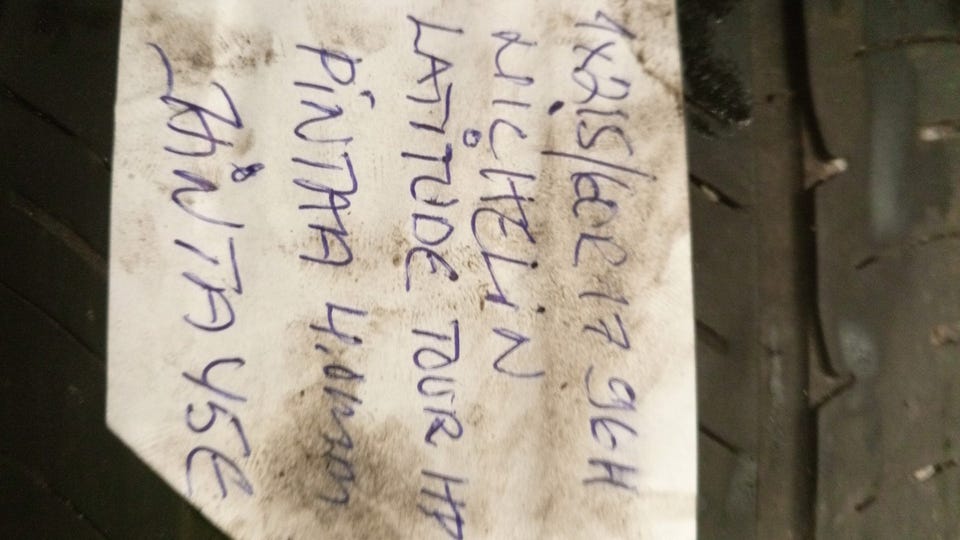 1X215/60R 17 96H
MICHELIN
LATITUDE TOUR HP
PINTAA 4.0mm
HINTA 45€